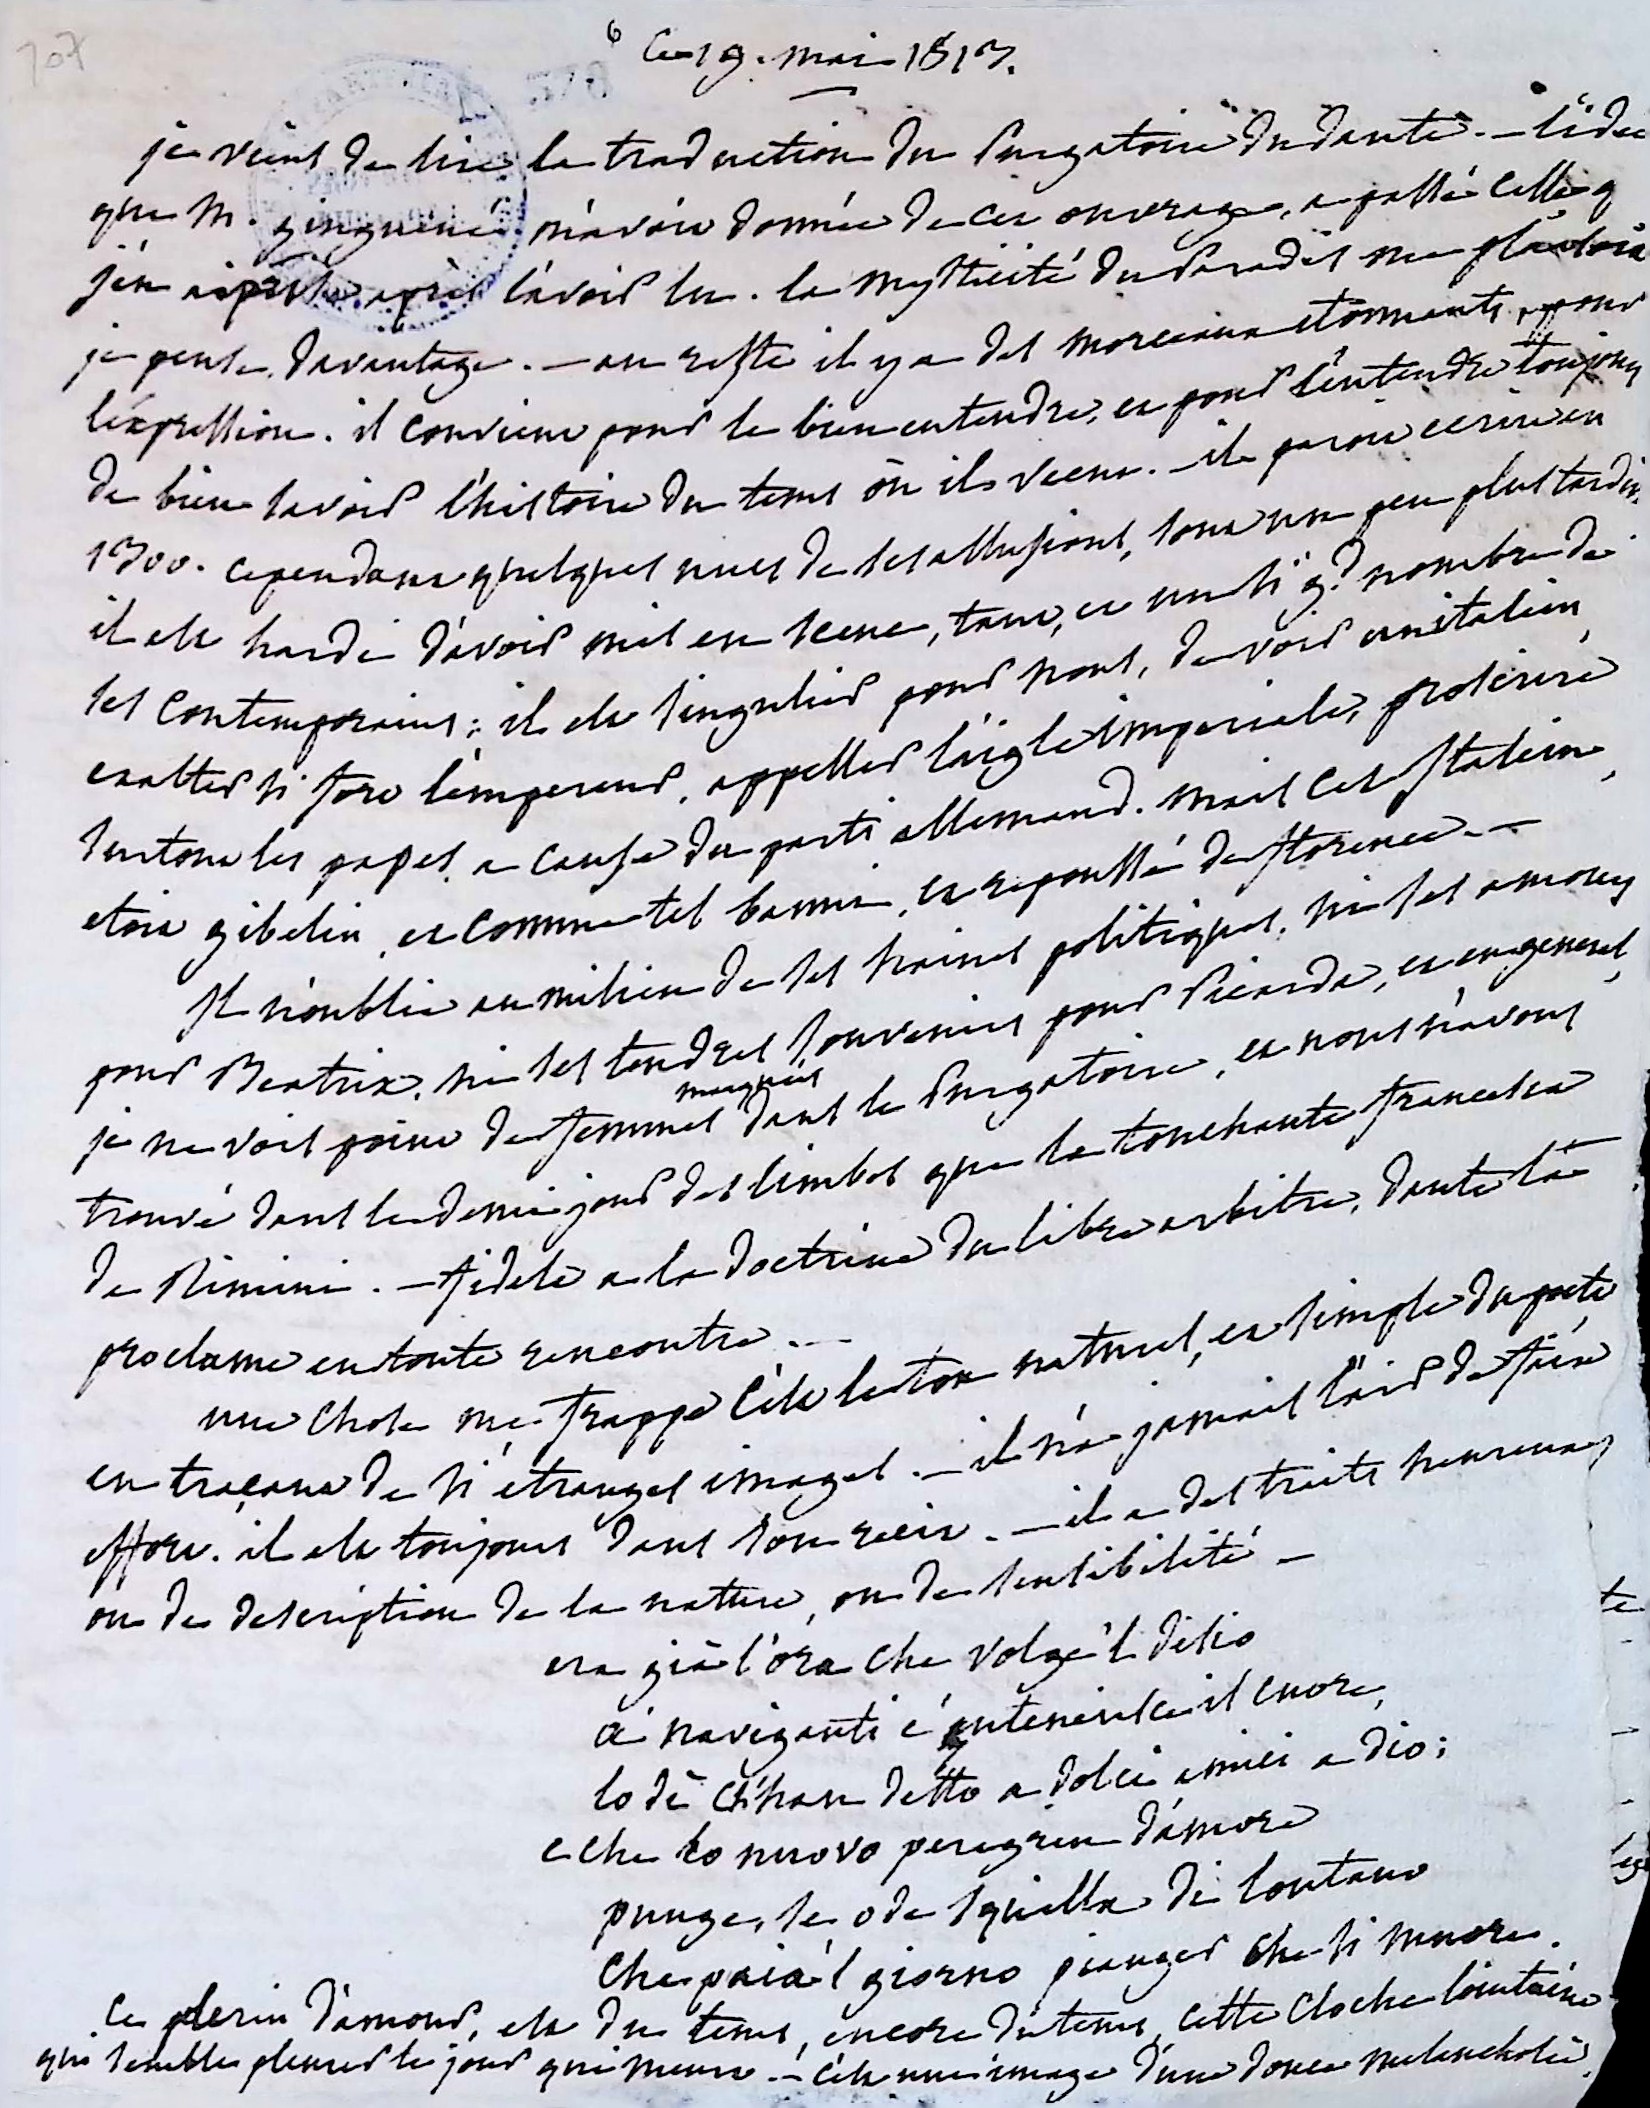 107
6
Ce 19. mai 1813.
je viens de lire la traduction du Purgatoire du dante. — l'idée
que M. ginguené m'avoit donnée de cet ouvrage, a passé celle q
j'en ai après l'avoir lu. la mysticité du Paradis me
je pense, davantage. — au reste il y a des morceaux etonnants, pour
l'expression. il convient pour le bien entendre, et pour l'entendre toujours
de bien savoir l'histoire du tems où il vecut. — il paroit ecrire en
1300. cependant quelques unes de ses allusions, sont un peu plus tardives.
il est hardi d'avoir mis en scene, tant, et un si gd nombre de
ses contemporains; il est singulier pour nous, de voir un italien,
exalter si fort l'empereur, appeller l'aigle imperiale, proscrire
surtout les papes, a cause du parti allemand. mais cet Italien,
etoit gibelin, et comme tel banni, et repoussé de florence. —
Il n'oublie au milieu de ses haines politiques, ni ses amours
pour Beatrix, ni ses tendres souvenirs pour Picarda, et en general,
je ne vois point de femmes dans le Purgatoire, et nous n'avons
marquées
trouvé dans le demi jour des limbes que la touchante francesca
de Rimini. — fidele a la doctrine du libre arbitre, dante la
proclame en toute rencontre. —
une chose me frappe c'est le ton naturel, et simple du poete
en traçant de si etranges images. — il n'a jamais l'air de faire
effort. il est toujours dans son recit. — il a des traits heureux,
ou de description de la nature, ou de sensibilité —
era già l'ora che volge 'l disio
ai naviganti e intenerisce il cuore,
lo dì ch'han detto a dolci amici a dio;
e che lo nuovo peregrin d'amore
punge, se ode squilla di lontano
che paia 'l giorno pianger che si muore.
Ce plerin d'amour, est du tems, encore du tems, cette cloche lointaine
qui semble pleurer le jour qui meurt. — c'est une image d'une douce melancholie.